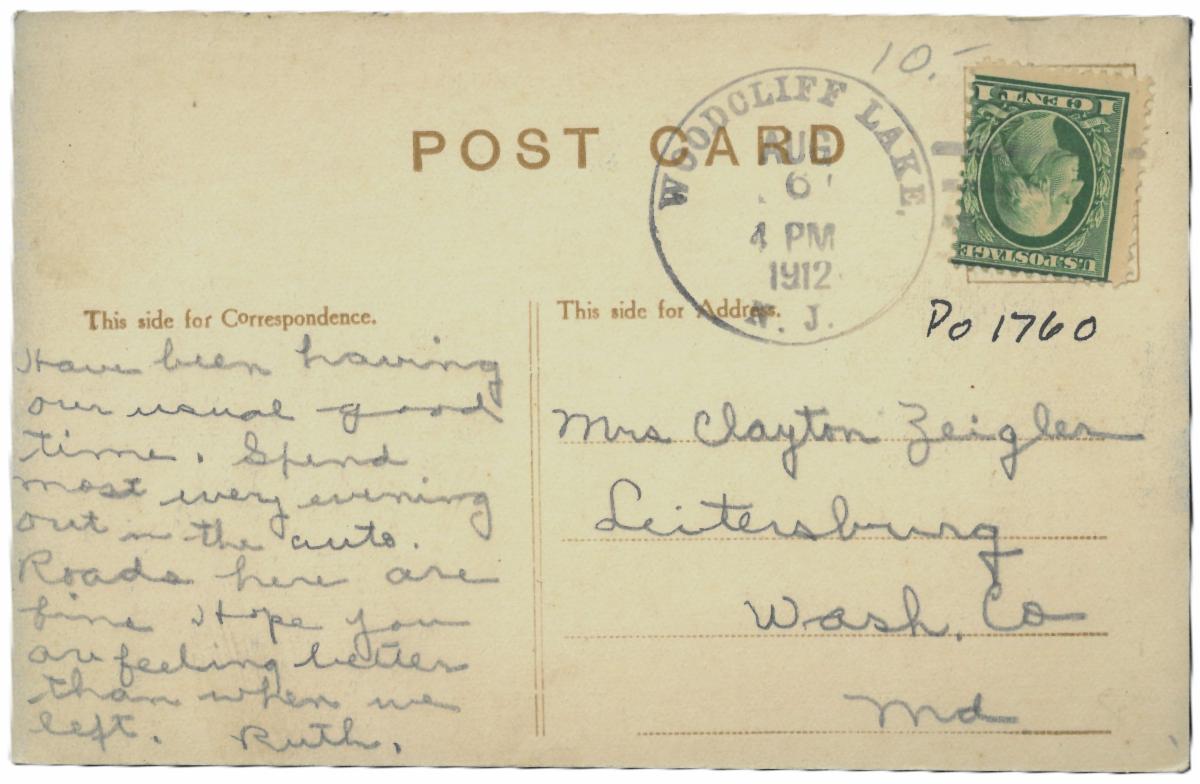 10.-
POST CARD
WOODCLIFF LAKE,
AUG
6
4 PM
1912
N. J.
1 CENT 1
U.S. POSTAGE
This side for Correspondence.
This side for Address.
Po 1760
Have been having
our usual good
time. Spend
most every evening
out in the auto.
Roads here are
fine Hope you
are feeling better
than when we
left. Ruth.
Mrs Clayton Zeigler
Leitersburg
Wash. Co
Md